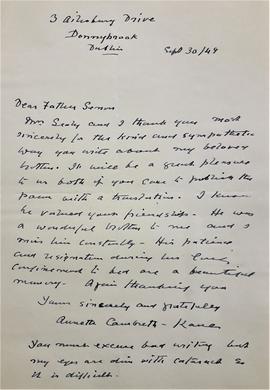 3 Ailesbury Drive
Donnybrook
Dublin
Sept 30/49
Dear Father Senan
Mrs Sealy and I thank you most
sincerely for the kind and sympathetic
way you write about my beloved
brother. It will be a great pleasure
to us both if you care to publish the
poem with a translation. I know
he valued your friendship. He was
a wonderful brother to me and I
miss him constantly - His patience
and resignation during his long
confinement to bed are a beautiful
memory. Again thanking you
Yours sincerely and gratefully
Annetta
You must excuse bad writing but
my eyes are dim with cataract so
it is difficult.